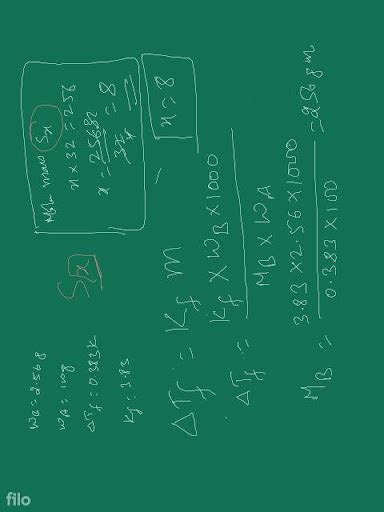 WB = 2.56g
WA = 100g
ΔTf = 0.383K
Kf = 3.83
Sx
ΔTf = Kf m
ΔTf = Kf × WB × 1000
MB × WA
MB = 3.83 × 2.56 × 1000 = 256 g m
0.383 × 100
Molar mass Sx
x × 32 = 256
x = 256 = 8
32
x = 8
filo